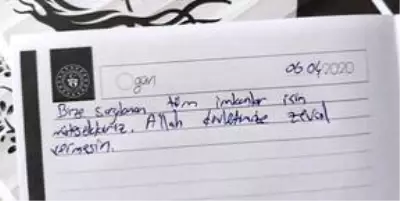 Ogan
06.04.2020
Bize sunulan tüm imkanlar için
müteşekkiriz. Allah devletimize zeval
vermesin.